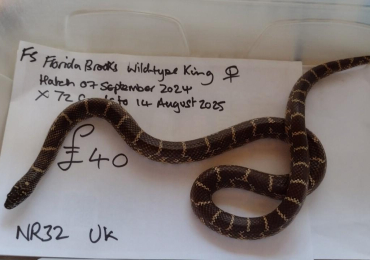 FS Florida Brooks Wild-type King ♀
Hatch 07 September 2024
X 72 to 14 August 2025
£40
NR32 UK